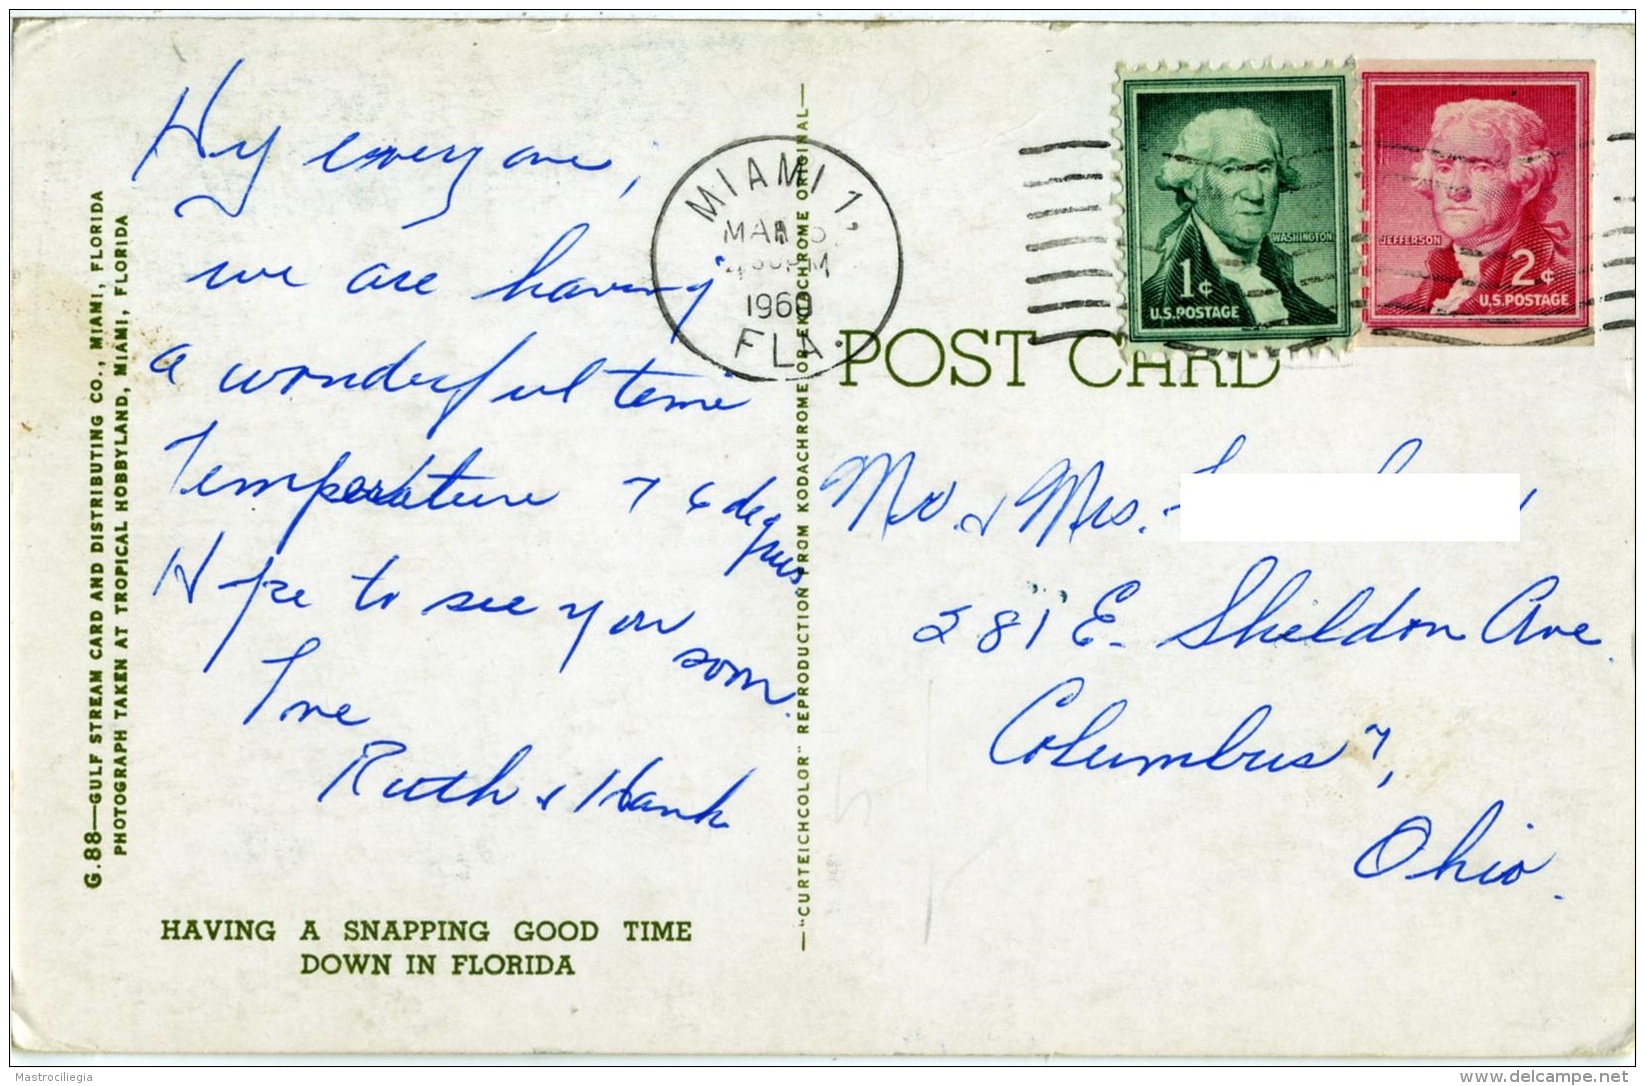 Hy everyone,
we are having
a wonderful time
Temperature 76 degrees
Hope to see you
soon.
Love
Ruth & Hank
HAVING A SNAPPING GOOD TIME
DOWN IN FLORIDA
G.88—GULF STREAM CARD AND DISTRIBUTING CO., MIAMI, FLORIDA
PHOTOGRAPH TAKEN AT TROPICAL HOBBYLAND, MIAMI, FLORIDA
—"CURTEICHCOLOR" REPRODUCTION FROM KODACHROME OR EKTACHROME ORIGINAL—
MIAMI
MAR
PM
1960
FLA.
WASHINGTON
1¢
U.S. POSTAGE
JEFFERSON
2¢
U.S. POSTAGE
POST CARD
Mr. & Mrs.
281 E. Sheldon Ave.
Columbus 7,
Ohio.
Mastrociliegia
delcampe.net